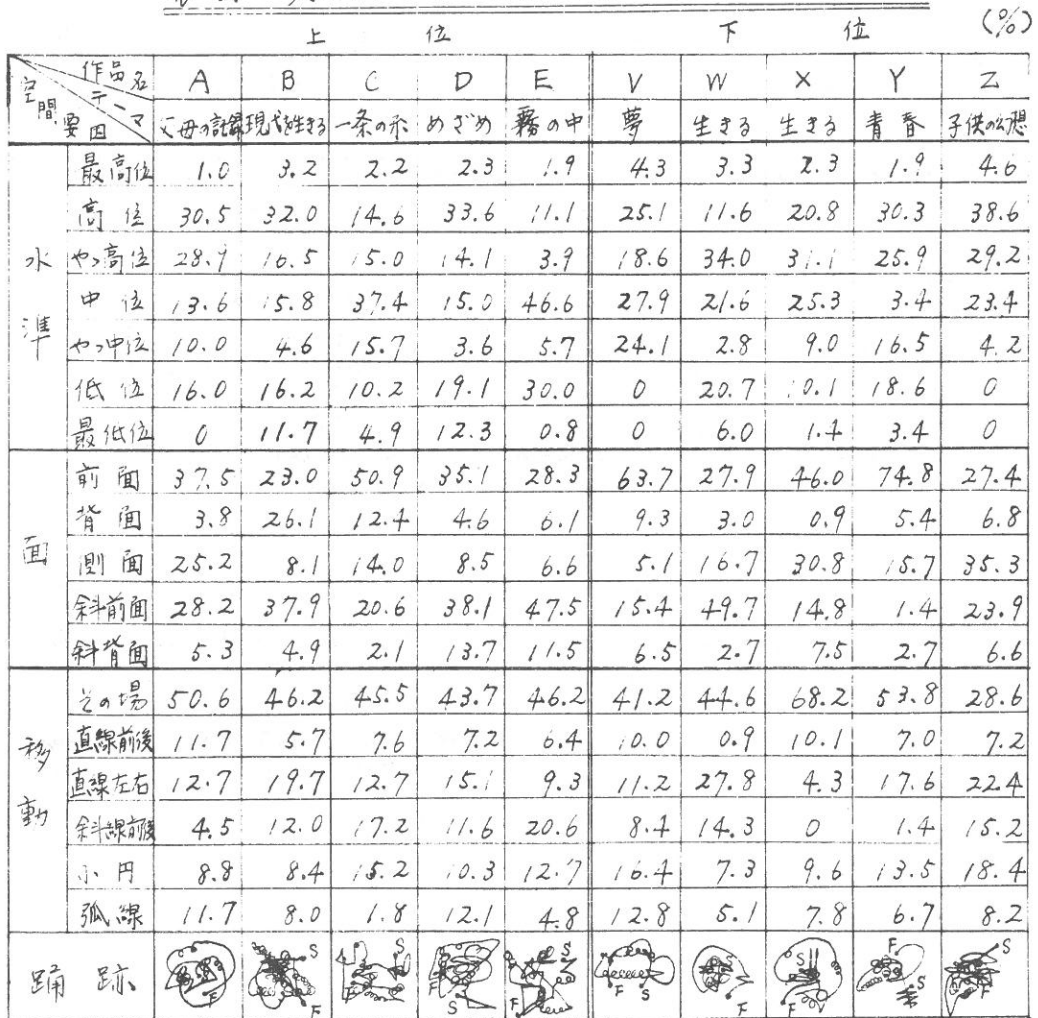 (%)
上位 下位
空間要因 作品名 テーマ A B C D E V W X Y Z
父母の記録 現代を生きる 一条の糸 めざめ 霧の中 夢 生きる 生きる 青春 子供の幻想
水準
最高位 1.0 3.2 2.2 2.3 1.9 4.3 3.3 2.3 1.9 4.6
高位 30.5 32.0 14.6 33.6 11.1 25.1 11.6 20.8 30.3 38.6
やゝ高位 28.9 16.5 15.0 14.1 3.9 18.6 34.0 31.1 25.9 29.2
中位 13.6 15.8 37.4 15.0 46.6 27.9 21.6 25.3 3.4 23.4
やゝ中位 10.0 4.6 15.7 3.6 5.7 24.1 2.8 9.0 16.5 4.2
低位 16.0 16.2 10.2 19.1 30.0 0 20.7 10.1 18.6 0
最低位 0 11.7 4.9 12.3 0.8 0 6.0 1.4 3.4 0
面
前面 37.5 23.0 50.9 35.1 28.3 63.7 27.9 46.0 74.8 27.4
背面 3.8 26.1 12.4 4.6 6.1 9.3 3.0 0.9 5.4 6.8
側面 25.2 8.1 14.0 8.5 6.6 5.1 16.7 30.8 15.7 35.3
斜前面 28.2 37.9 20.6 38.1 47.5 15.4 49.7 14.8 1.4 23.9
斜背面 5.3 4.9 2.1 13.7 11.5 6.5 2.7 7.5 2.7 6.6
移動
その場 50.6 46.2 45.5 43.7 46.2 41.2 44.6 68.2 53.8 28.6
直線前後 11.7 5.7 7.6 7.2 6.4 10.0 0.9 10.1 7.0 7.2
直線左右 12.7 19.7 12.7 15.1 9.3 11.2 27.8 4.3 17.6 22.4
斜線前後 4.5 12.0 17.2 11.6 20.6 8.4 14.3 0 1.4 15.2
小円 8.8 8.4 15.2 10.3 12.7 16.4 7.3 9.6 13.5 18.4
弧線 11.7 8.0 1.8 12.1 4.8 12.8 5.1 7.8 6.7 8.2
踊跡 F S F S F F S S F F S F S F S F F S S F